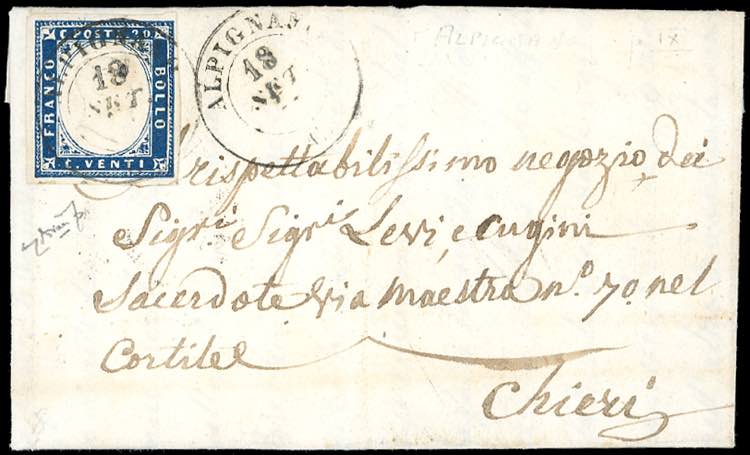 C. POSTE 20
FRANCO
BOLLO
C. VENTI
ALPIGNANO
18
SET.
ALPIGNAN
18
SET
ALPIGNANO
IX
Al rispettabilissimo negozio dei
Sigri. Sigri Levi, e cugini
Sacerdote via Maestra no. 70. nel
Cortile
Chieri